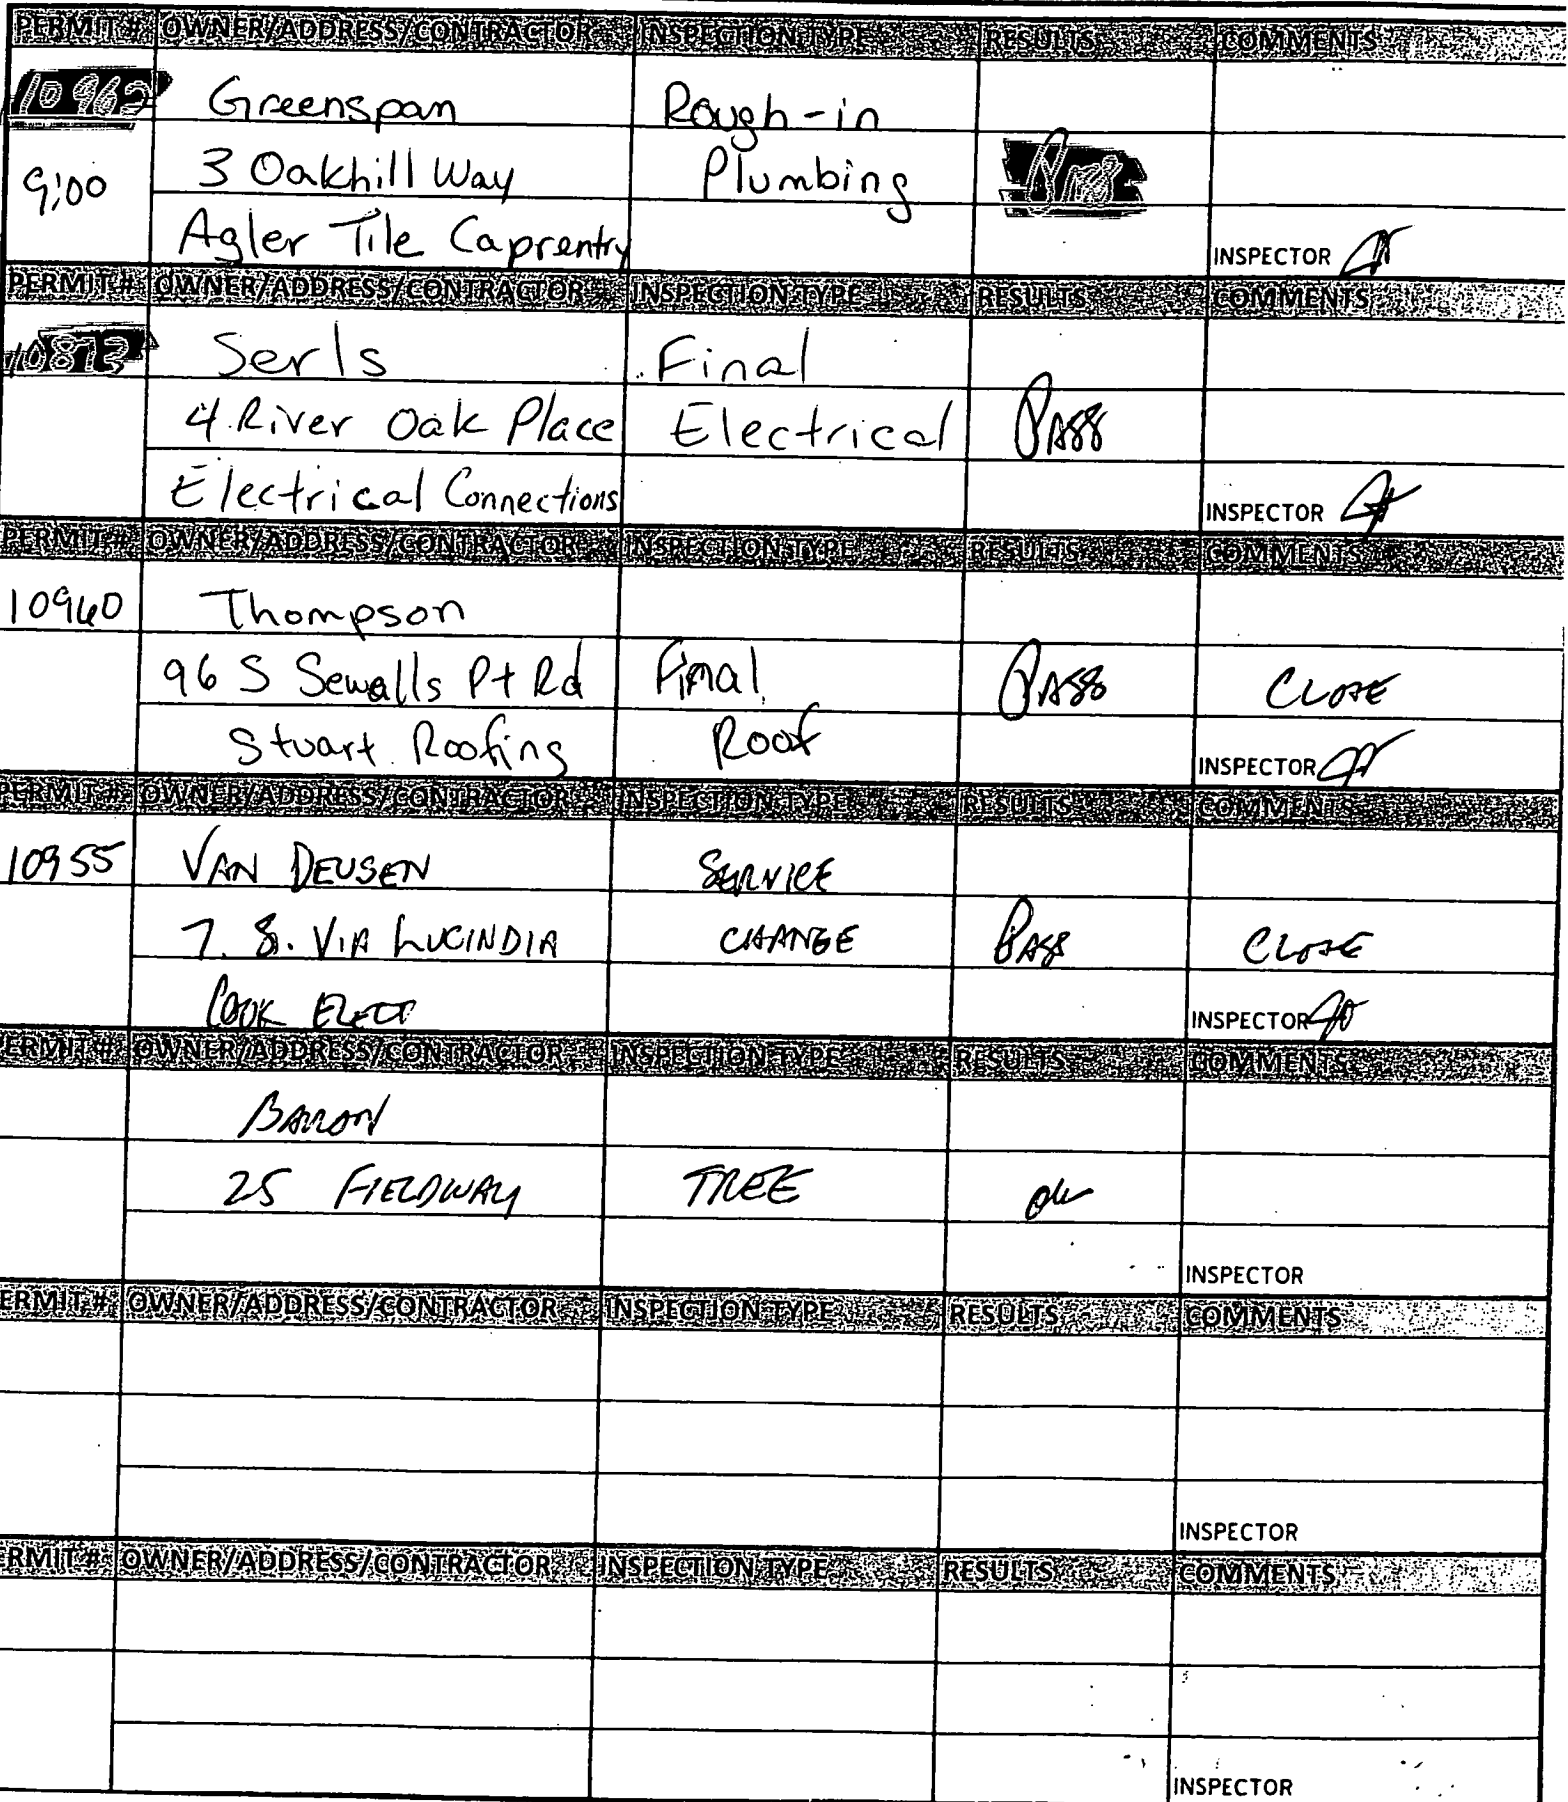 PERMIT # OWNER/ADDRESS/CONTRACTOR INSPECTION TYPE RESULTS COMMENTS
10962 Greenspan Rough-in
9:00 3 Oakhill Way Plumbing Pass
Agler Tile Caprentry INSPECTOR
PERMIT # OWNER/ADDRESS/CONTRACTOR INSPECTION TYPE RESULTS COMMENTS
Serls Final
4 River Oak Place Electrical PASS
Electrical Connections INSPECTOR
PERMIT # OWNER/ADDRESS/CONTRACTOR INSPECTION TYPE RESULTS COMMENTS
10960 Thompson
96 S Sewalls Pt Rd Final PASS CLOSE
Stuart Roofing Roof INSPECTOR
PERMIT # OWNER/ADDRESS/CONTRACTOR INSPECTION TYPE RESULTS COMMENTS
10955 VAN DEUSEN SERVICE
7. S. VIA LUCINDIA CHANGE PASS CLOSE
COOK ELECT INSPECTOR
ERMIT # OWNER/ADDRESS/CONTRACTOR INSPECTION TYPE RESULTS COMMENTS
BARON
25 FIELDWAY TREE ok
INSPECTOR
ERMIT # OWNER/ADDRESS/CONTRACTOR INSPECTION TYPE RESULTS COMMENTS
INSPECTOR
RMIT # OWNER/ADDRESS/CONTRACTOR INSPECTION TYPE RESULTS COMMENTS
INSPECTOR